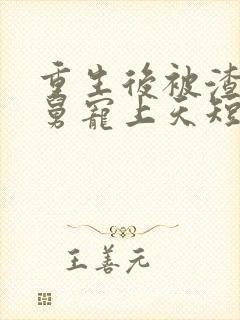 重生後被渣
舅寵上天短
王善元